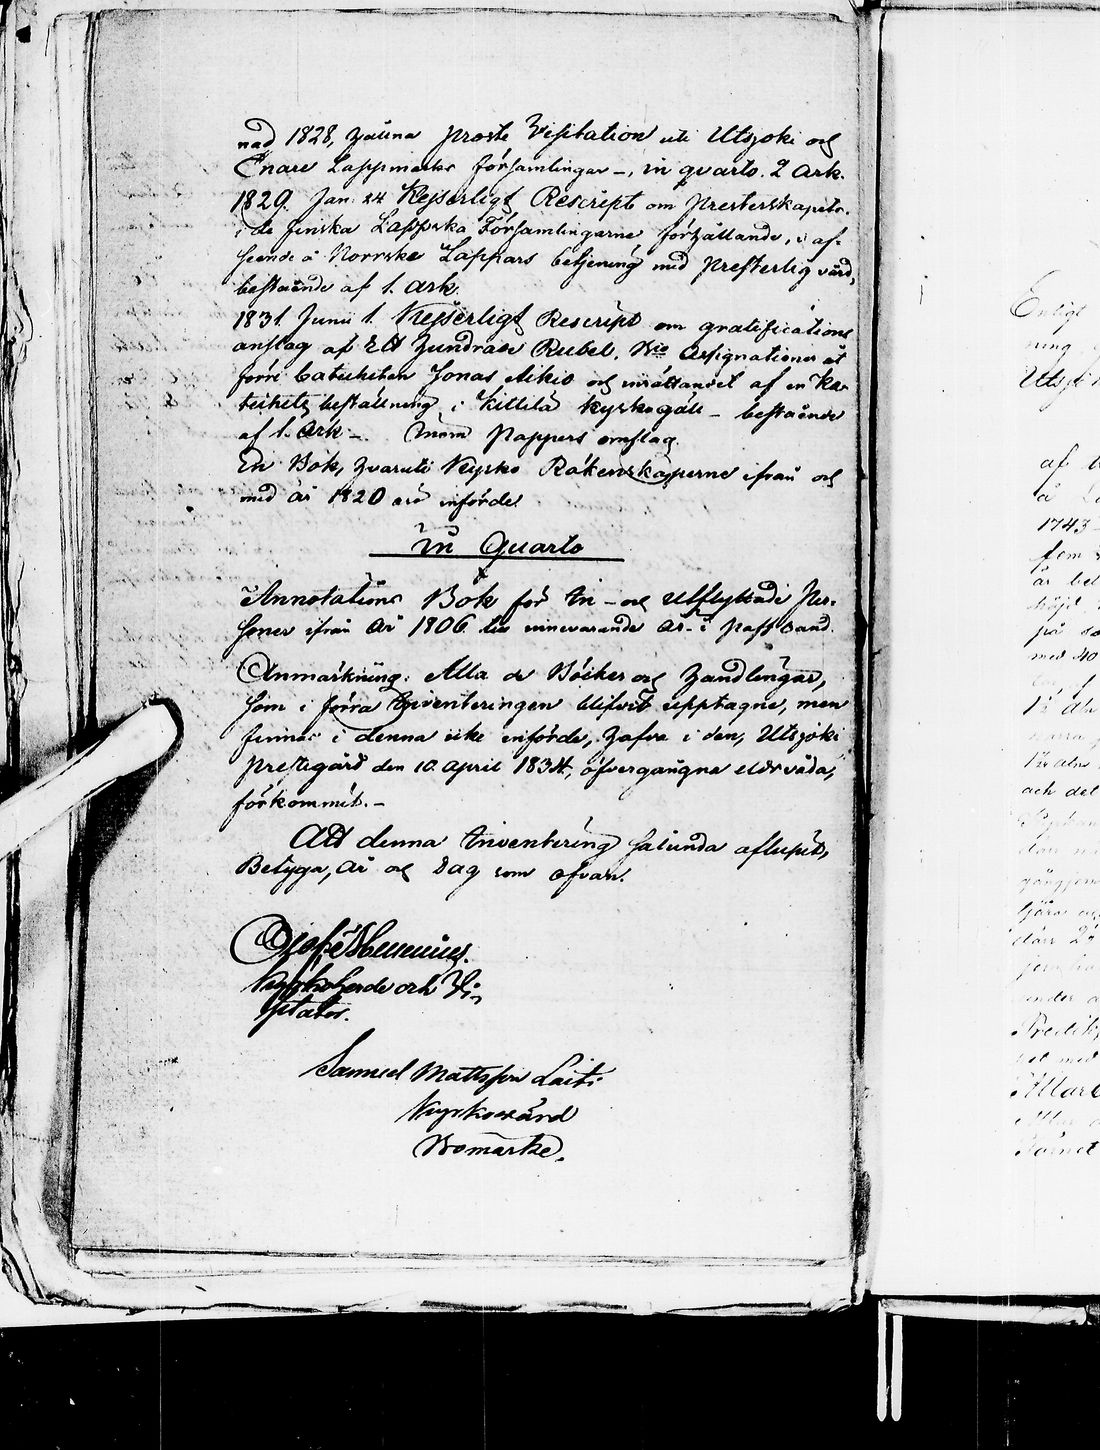 nad 1828, hålna Prosts Visitation uti Utsjoki och
Enare Lappmarks församlingar –, in quarto. 2 Ark.
1829. Jan: 24 Kejserligt Rescript om Presterskapets
i de finska Lappska Församlingarne förhållande, i af-
seende å Norrske Lappars betjening med presterlig vård,
bestående af 1. Ark.
1831. Junii 1. Kejserligt Rescript om gratifications
anslag af Ett Hundrade Rubel. Bco Assignationer åt
förre Catecheten Jonas Aikio och inrättandet af en Ka-
techets beställning i Kittilä Kyrkogäll – bestående
af 1. Ark – inom Pappers omslag.
En Bok, hvaruti Kyrko Räkenskaperne ifrån och
med år 1820 äro införde.
in Quarto
Annotations Bok för In – och Utflyttade Per-
soner ifrån År 1806 till innevarande År – i papp Band.
Anmärkning: Alla de Böcker och Handlingar,
som i förra Inventeringen blifvit upptagne, men
finnas i denna icke införde, hafva i den, Utsjoki
prestegård den 10. April 1834, öfvergångna eldsvåda,
förkommit. –
Att denna Inventering sålunda aflupit,
Betyga, År och Dag som ofvan.
Kyrkoherde och Vi-
sitator.
Samuel Mattsson Laiti
Kyrkovärd
Bomärke.
Enligt
ning
Utsj
af
å
1743 –
fem
är
höjd
på
med 40
och det